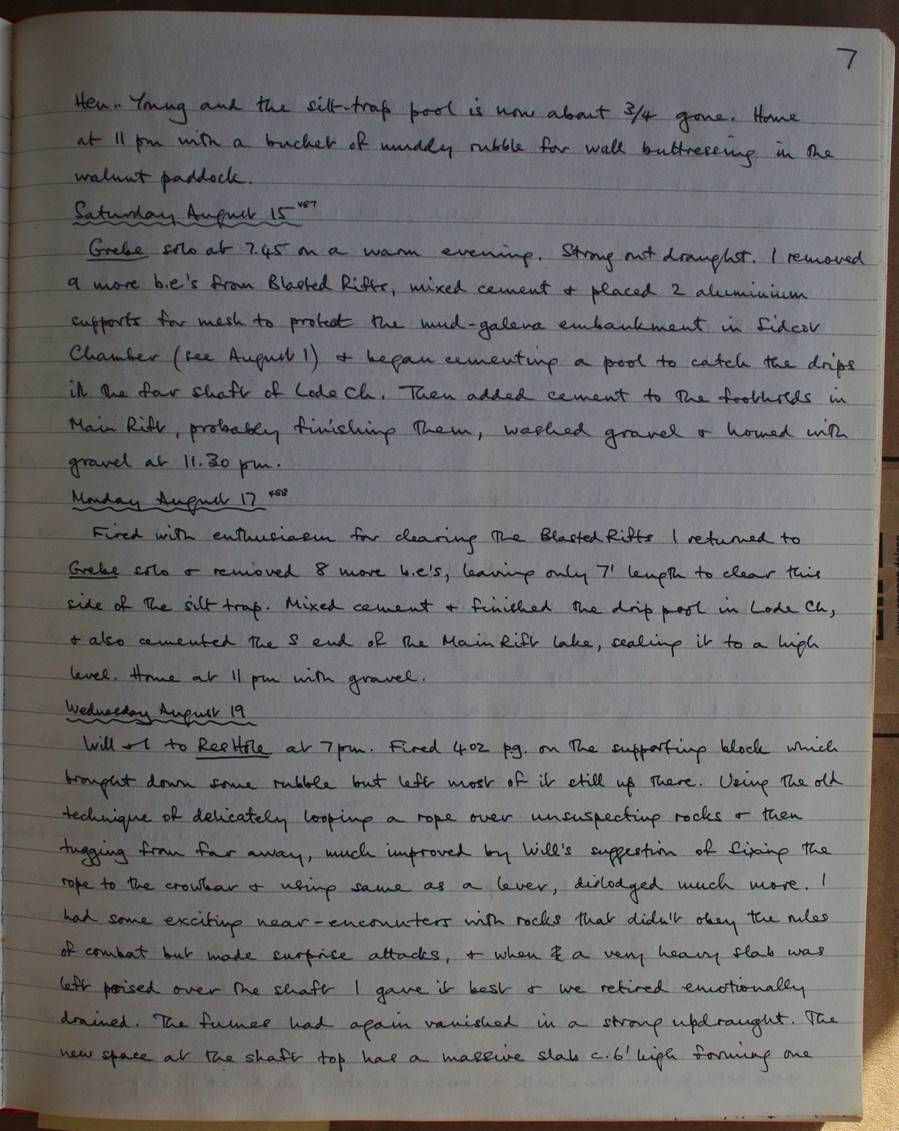 7
Hen.. Young and the silt-trap pool is now about 3/4 gone. Home
at 11 pm with a bucket of muddy rubble for wall buttressing in the
walnut paddock.
Saturday August 15 487
Grebe solo at 7.45 on a warm evening. Strong out draught. I removed
9 more b.e's from Blasted Rifts, mixed cement & placed 2 aluminium
supports for mesh to protect the mud-galena embankment in Sidcot
Chamber (see August 1) & began cementing a pool to catch the drips
in the far shaft of Lode Ch. Then added cement to the footholds in
Main Rift, probably finishing them, washed gravel & homed with
gravel at 11.30 pm.
Monday August 17 488
Fired with enthusiasm for clearing the Blasted Rifts I returned to
Grebe solo & removed 8 more b.e's, leaving only 7' length to clear this
side of the silt trap. Mixed cement & finished the drip pool in Lode Ch,
& also cemented the S end of the Main Rift lake, sealing it to a high
level. Home at 11 pm with gravel.
Wednesday August 19
Will & I to Reg Hole at 7pm. Fired 4oz pg. on the supporting block which
brought down some rubble but left most of it still up there. Using the old
technique of delicately looping a rope over unsuspecting rocks & then
tugging from far away, much improved by Will's suggestion of fixing the
rope to the crowbar & using same as a lever, dislodged much more. I
had some exciting near-encounters with rocks that didn't obey the rules
of combat but made surprise attacks, & when a very heavy slab was
left poised over the shaft I gave it best & we retired emotionally
drained. The fumes had again vanished in a strong updraught. The
new space at the shaft top has a massive slab c.6' high forming one